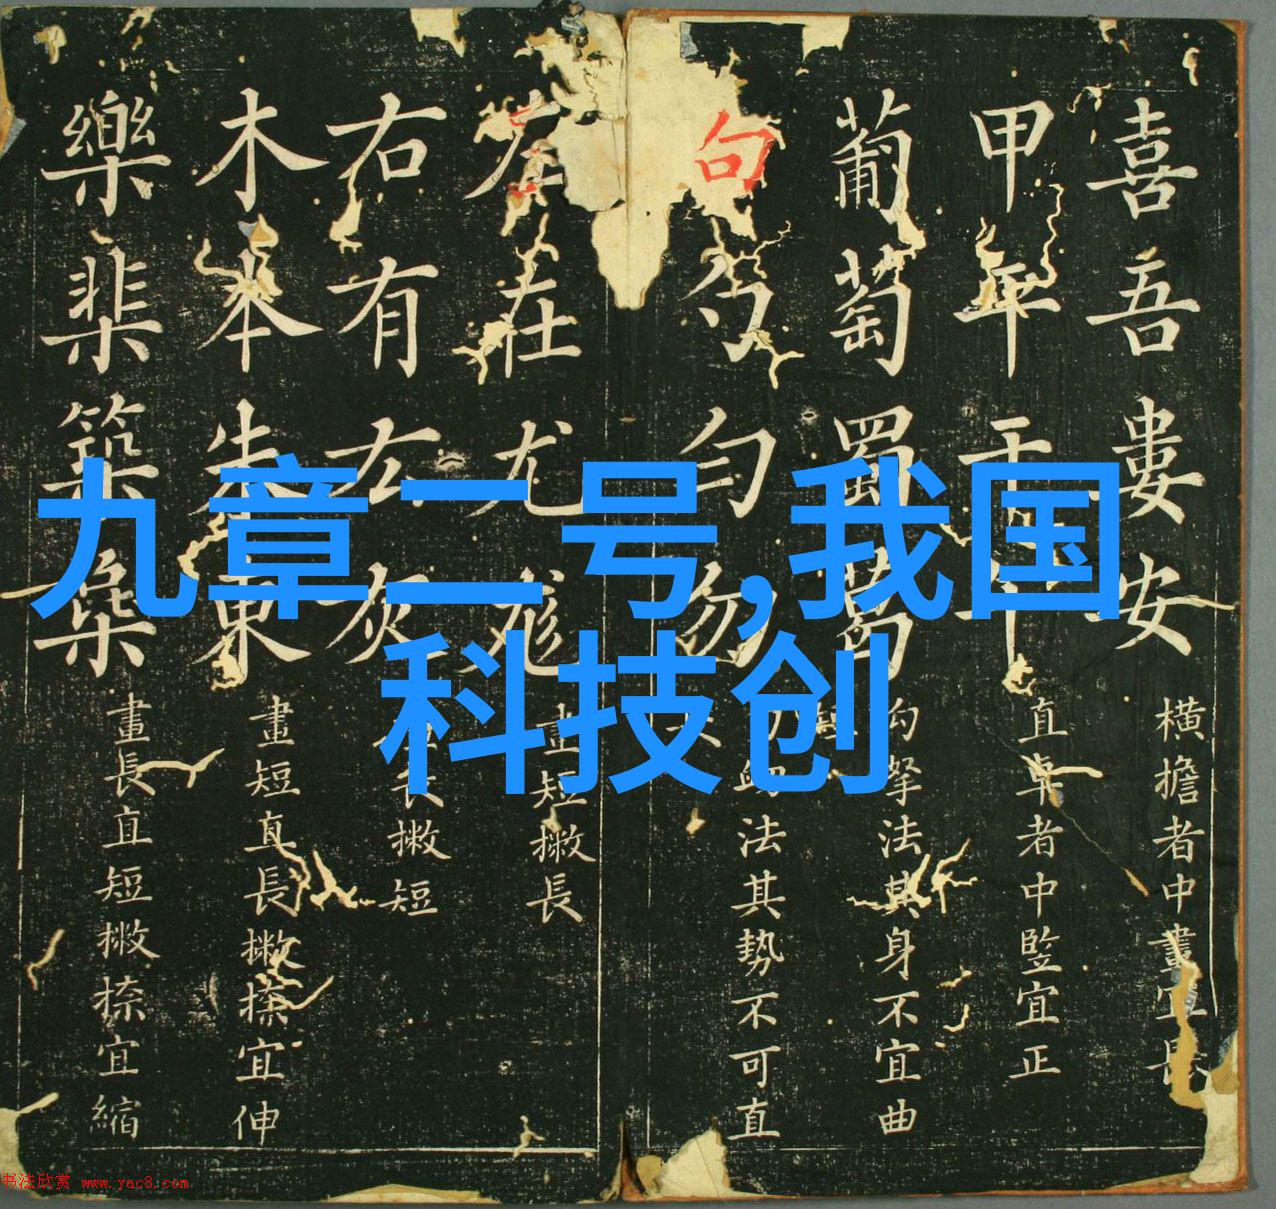 九章二号,我国
科技创
喜吾婁安
横擔者中畫宜長
甲平干
直卓者中竪宜正
葡萄蜀葛
勾拏法其身不宜曲
句勻勿
法其勢不可直
左在尤尨
畫短撇長
右有厷灰
畫長撇短
木本朱東
畫短直長撇捺宜伸
樂棐築
畫長直短撇捺宜縮
书法欣赏 www.yac8.com